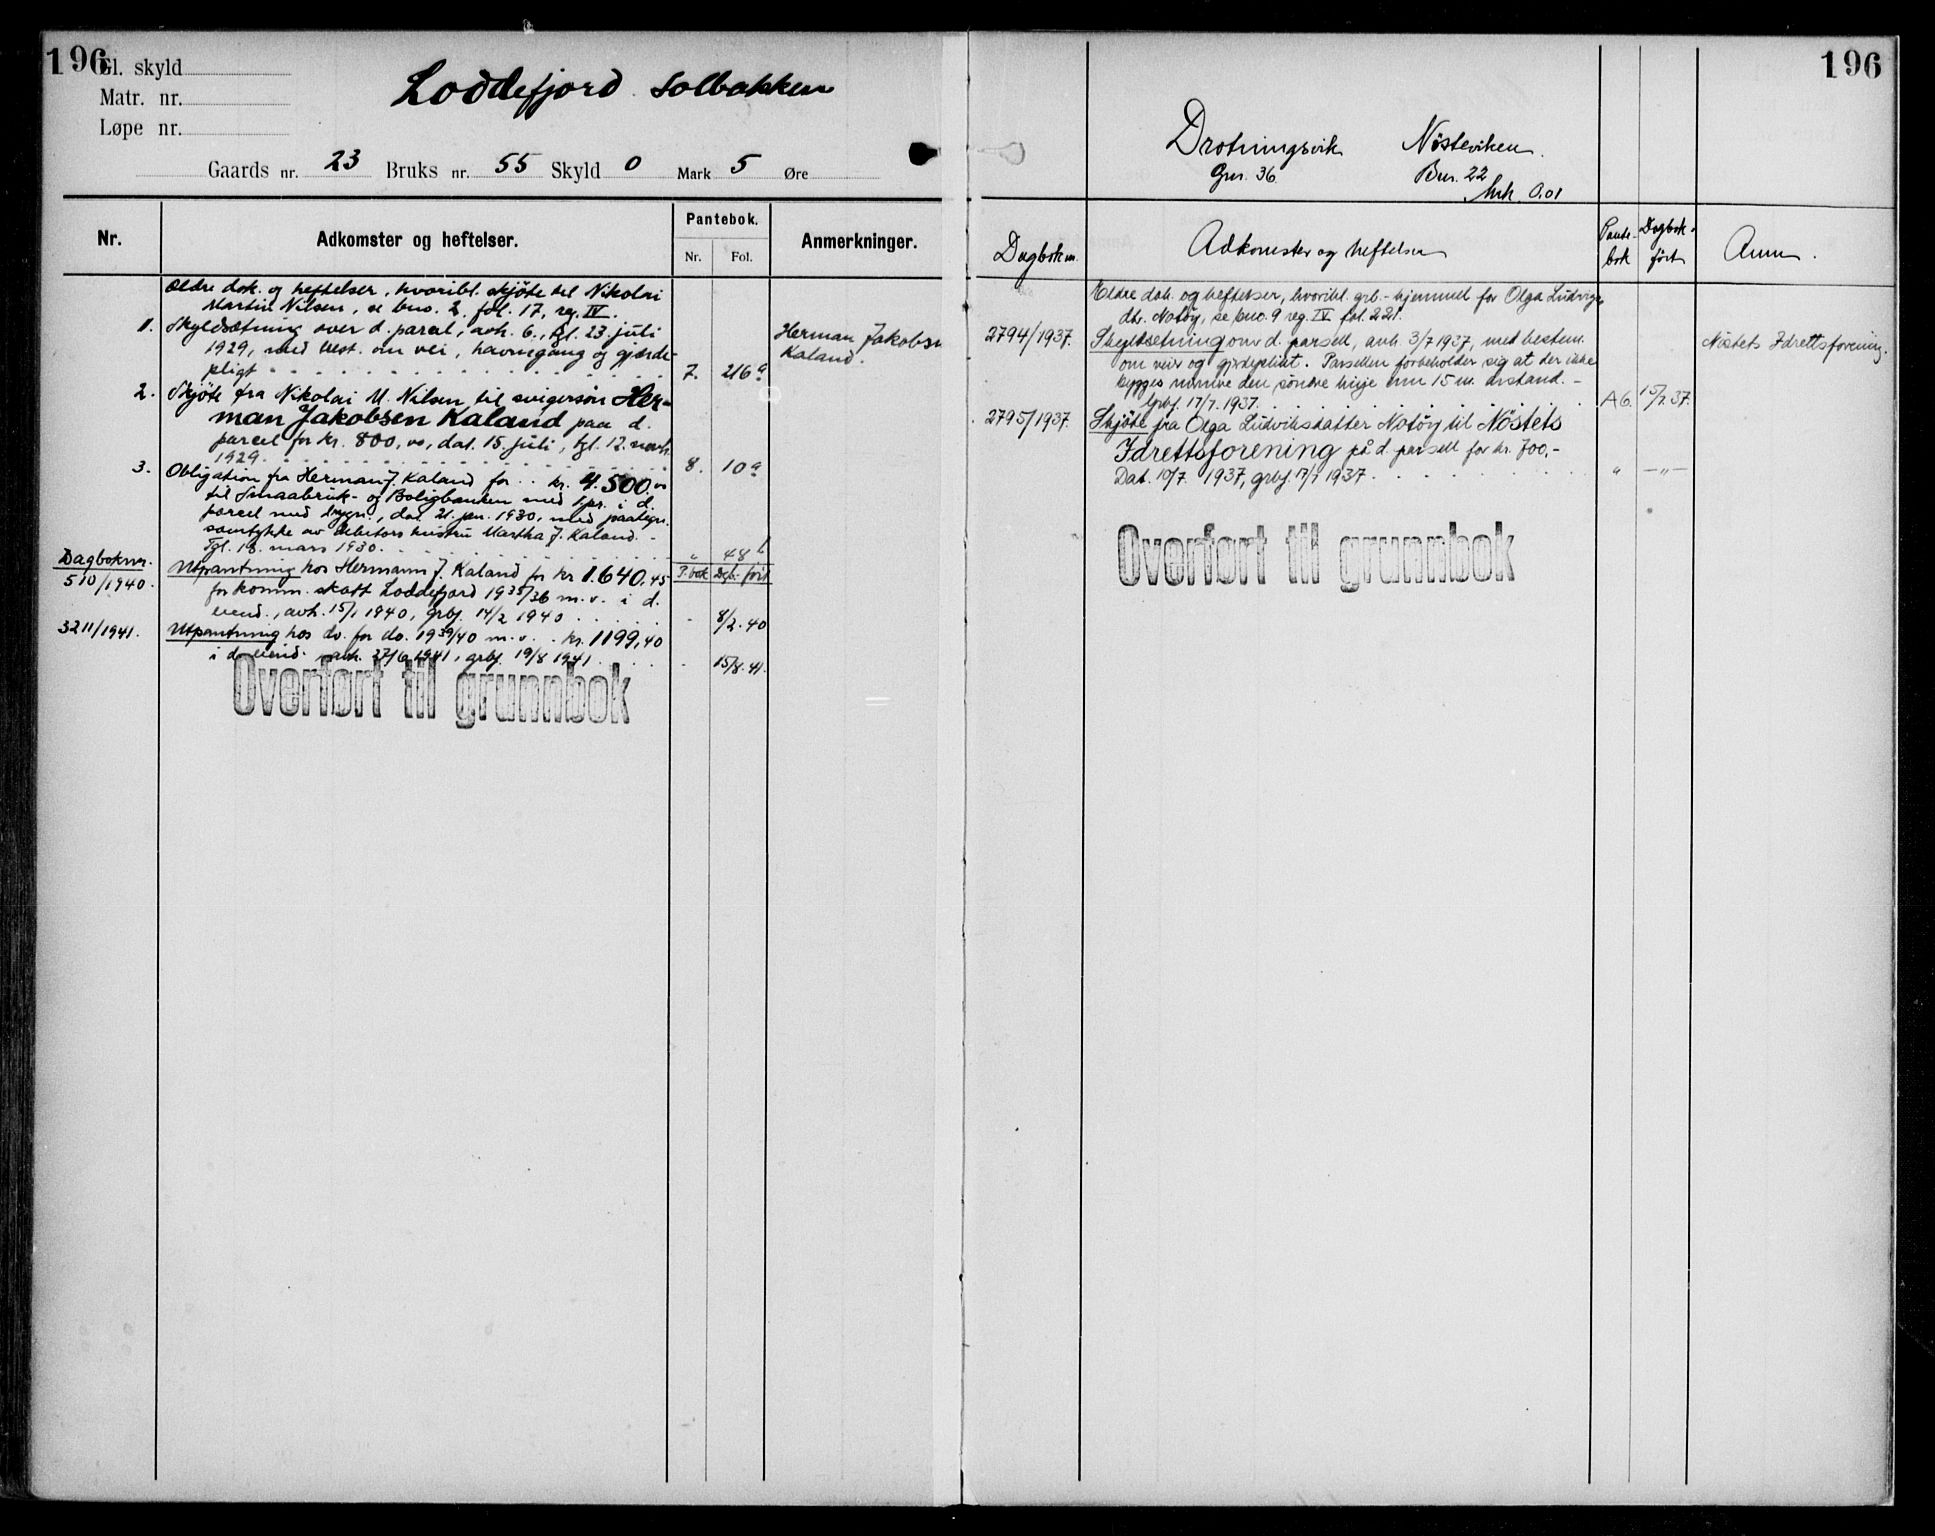 196
Gl. skyld
Matr. nr.
Løpe nr.
Loddefjord Solbakken
Gaards nr. 23 Bruks nr. 55 Skyld 0 Mark 5 Øre
Nr.
Adkomster og heftelser.
Pantebok.
Nr. Fol.
Anmerkninger.
Ældre dok. og heftelser, hvoribl. skjöte til Nikolai
Martin Nilsen, se bno. 2, fol. 17, reg. IV.
1. Skyldsætning over d. parcel, avh. 6., tgl. 23. juli
1929, med best. om vei, havnegang og gjærde-
pligt 7. 216 a
Herman Jakobsen
Kaland.
2. Skjöte fra Nikolai M. Nilsen til svigersön Her-
man Jakobsen Kaland paa d.
parcel for kr. 800,00, dat. 15. juli, tgl. 12. novb.
1929. 8. 10 a
3. Obligation fra Herman J. Kaland for kr. 4.500,00
til Smaabruk- og Boligbanken med 1 pr. i d.
parcel med bygn., dat. 21. jan. 1930, med paategn.
samtykke av debitors hustru Martha J. Kaland.
Tgl. 18. mars 1930. " 48 b
Dagboknr.
P.bok Dgb. ført
510/1940. Utpantning hos Hermann J. Kaland for kr 1.640,45
for komm. skatt Loddefjord 1935/36 m. v. i d.
eiend., avh. 15/1 1940, grbf. 14/2 1940 - 8/2.40
3211/1941. Utpantning hos do. for do. 1939/40 m. v. kr. 1199,40
i d. eiend. avh. 27/6 1941, grbf. 19/8 1941. - 15/8.41.
Overført til grunnbok
196
Drotningsvik Nösteviken.
Gnr. 36. Bnr. 22
Mrk. 0.01
Dagboknr.
Adkomster og heftelser
Pante-
bok
Dagbok-
ført
Anm.
Eldre dok. og heftelser, hvoribl. grb.-hjemmel for Olga Ludvigs
dtr. Notöy, se bno. 9 reg. IV fol. 221.
2794/1937. Skyldsetning over d. parsell, avh. 3/7 1937, med bestem.
om veir og gjerdeplikt. Parsellen forbeholder sig at der ikke
bygges nærmere den söndre linje enn 15 m. avstand. -
Grbf. 17/7. 1937. A6. 15/7.37.
Nöstets Idrettsforening.
2795/1937. Skjöte fra Olga Ludviksdatter Notöy til Nöstets
Idrettsforening på d. parsell for kr. 700,-
Dat. 10/7. 1937, grbf. 17/7 1937. " -"-
Overført til grunnbok